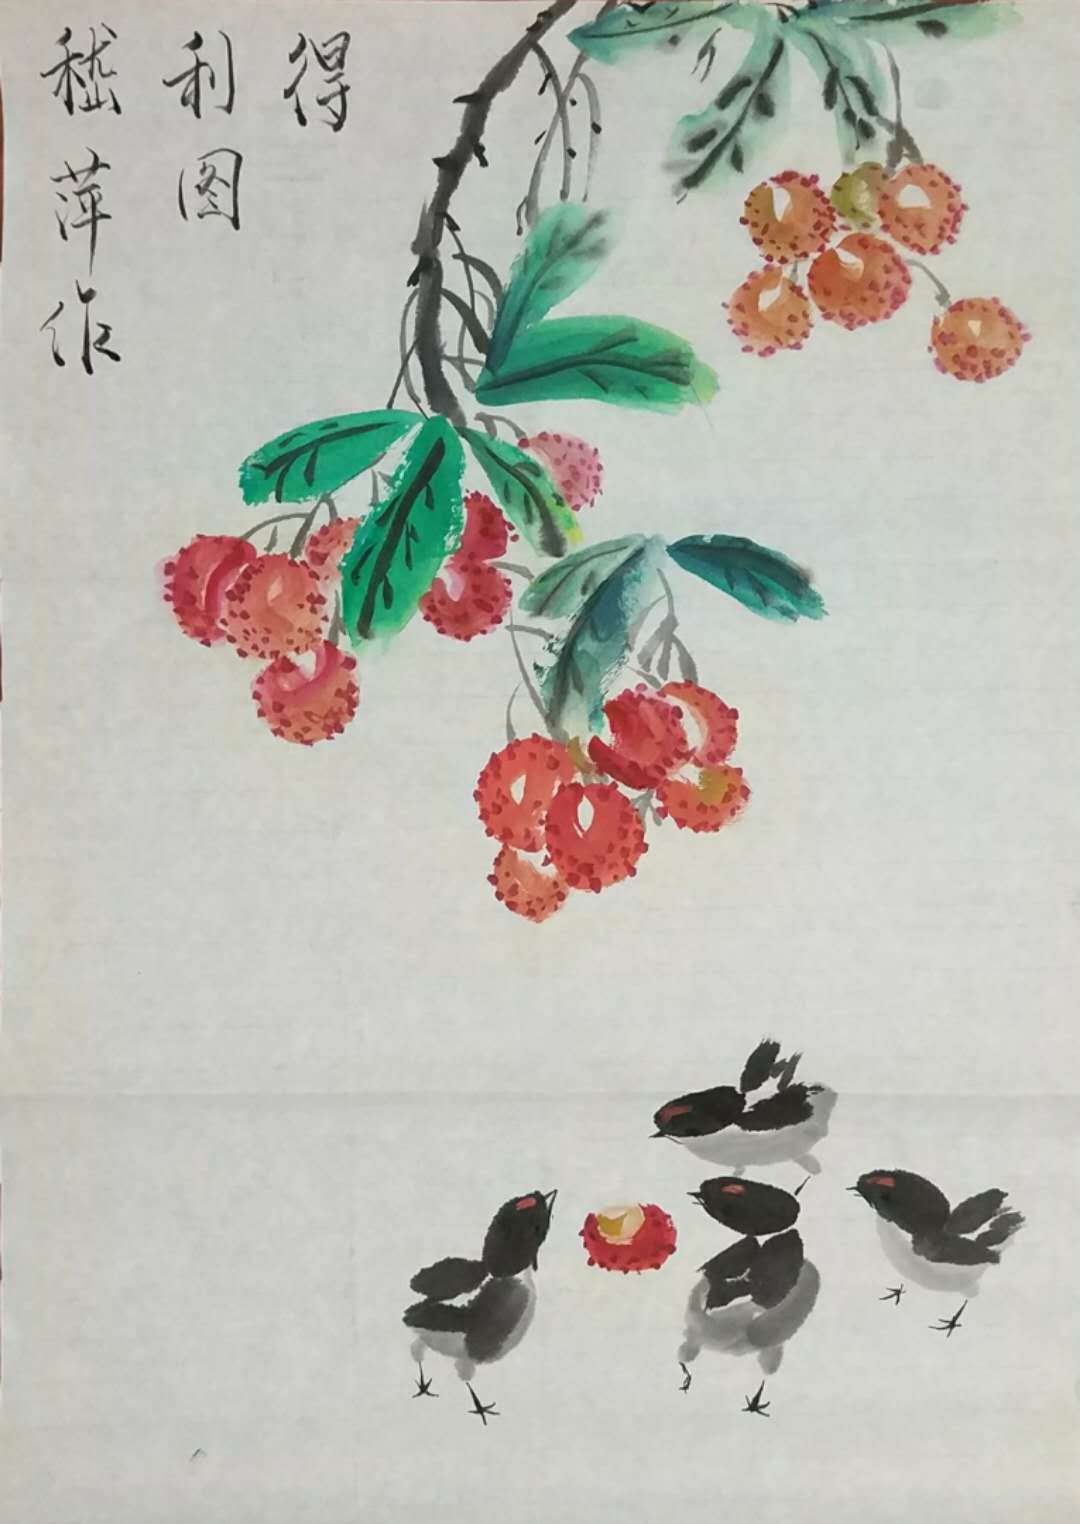 得
利图
嵇萍作